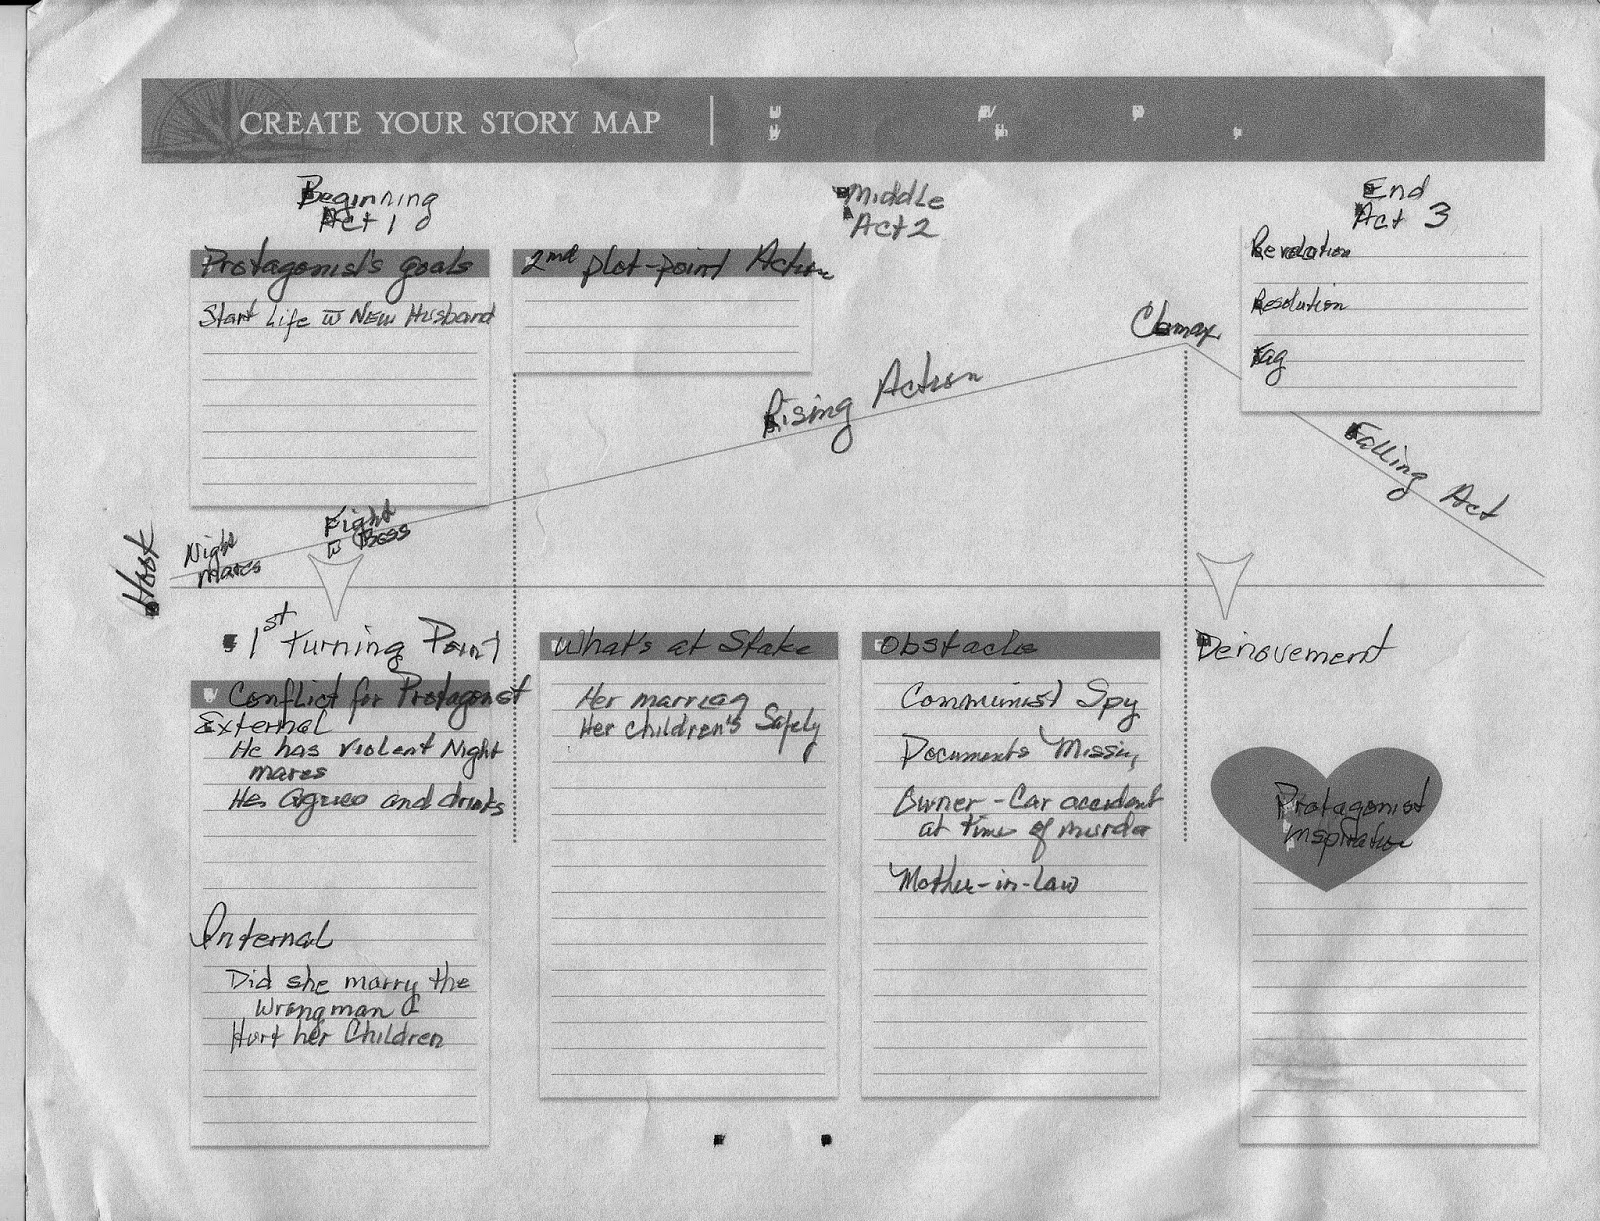 CREATE YOUR STORY MAP
Beginning
Act 1
Middle
Act 2
End
Act 3
Protagonist's goals
Start Life w New Husband
2nd plot-point Action
Revolation
Resolution
Tag
Climax
Rising Action
Falling Act
Hook
Night
mares
Fight
w Boss
1st Turning Point
Conflict for Protagonist
External
He has violent Night
mares
He Agrues and drinks
Internal
Did she marry the
Wrong man &
Hurt her Children
What's at Stake
Her marriag
Her children's Safely
Obstacle
Communist Spy
Documents Missin,
Owner - Car accident
at time of murder
Mother-in-law
Denovement
Protagonist
Inspiration